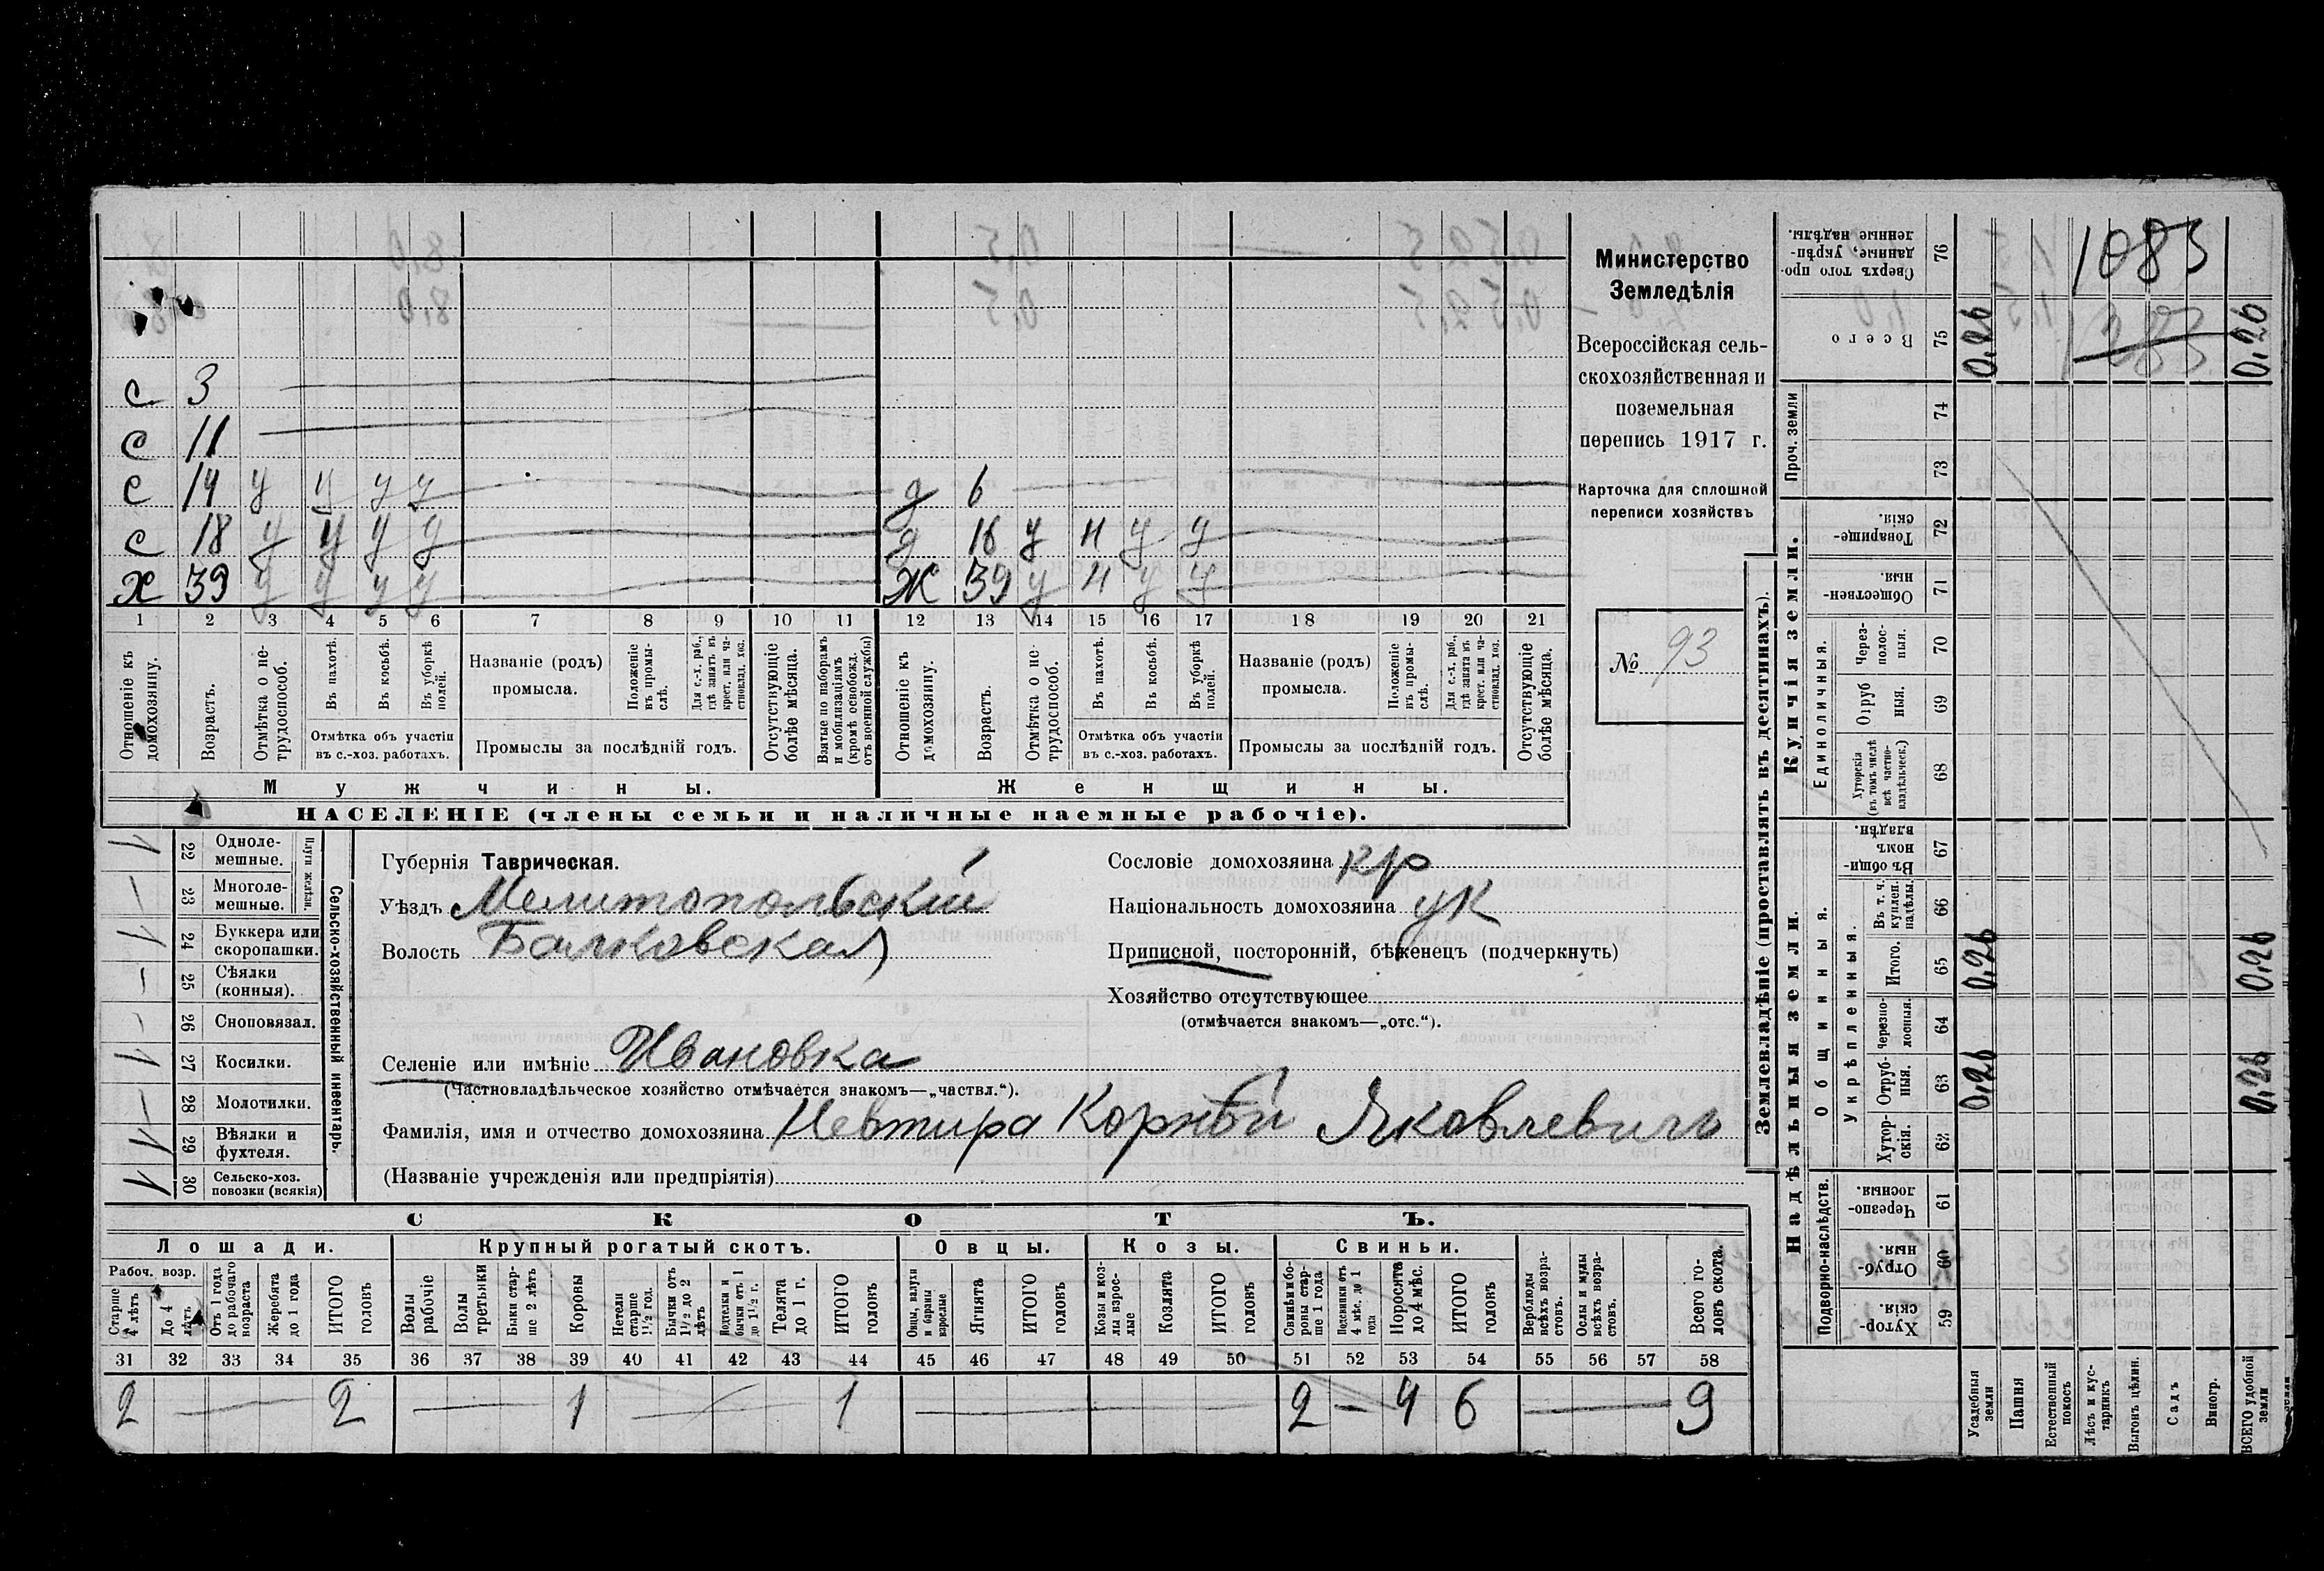 с 3
с 11
с 14 у у у у
д 6
с 18 у у у у
д 16 у н у у
х 39 у у у у
Ж 39 у н у у
1 2 3 4 5 6 7 8 9 10 11 12 13 14 15 16 17 18 19 20 21
Отношеніе къ домохозяину.
Возрастъ.
Отмѣтка о не-трудоспособ.
Въ пахотѣ.
Въ косьбѣ.
Въ уборкѣ полей.
Отмѣтка объ участіи въ с.-хоз. работахъ.
Названіе (родъ) промысла.
Положеніе въ промы-слѣ.
Для с.-х. раб., гдѣ занятъ въ крест. или ча-стновлад. хоз.
Промыслы за послѣдній годъ.
Отсутствующіе болѣе мѣсяца.
Взятые по наборамъ и мобилизаціямъ (кромѣ освобожд. отъ военной службы)
Отношеніе къ домохозяину.
Возрастъ.
Отмѣтка о не-трудоспособ.
Въ пахотѣ.
Въ косьбѣ.
Въ уборкѣ полей.
Отмѣтка объ участіи въ с.-хоз. работахъ.
Названіе (родъ) промысла.
Положеніе въ промы-слѣ.
Для с.-х. раб., гдѣ занята въ крест. или ча-стновлад. хоз.
Промыслы за послѣдній годъ.
Отсутствующіе болѣе мѣсяца.
Мужчины.
Женщины.
НАСЕЛЕНІЕ (члены семьи и наличные наемные рабочіе).
Министерство
Земледѣлія
Всероссійская сель-
скохозяйственная и
поземельная
перепись 1917 г.
Карточка для сплошной
переписи хозяйствъ
№ 93
Сельско-хозяйственный инвентарь.
Плуги желѣзн.
1 22 Одноле-мешные.
— 23 Многоле-мешные.
1 24 Буккера или скоропашки.
— 25 Сѣялки (конныя).
- 26 Сноповязал.
1 27 Косилки.
— 28 Молотилки.
1 29 Вѣялки и фухтеля.
1 30 Сельско-хоз. повозки (всякія)
Губернія Таврическая.
Уѣздъ Мелитопольскій
Волость Балковская
Селеніе или имѣніе Ивановка
(Частновладѣльческое хозяйство отмѣчается знакомъ—„частвл.“).
Фамилія, имя и отчество домохозяина Невтира Корнѣй Яковлевичъ
(Названіе учрежденія или предпріятія)
Сословіе домохозяина кр
Національность домохозяина ук
Приписной, посторонній, бѣженецъ (подчеркнуть)
Хозяйство отсутствующее
(отмѣчается знакомъ—„отс.“).
СКОТЪ.
Лошади. Крупный рогатый скотъ. Овцы. Козы. Свиньи.
Рабоч. возр.
Старше 4 лѣтъ
До 4 лѣтъ
Отъ 1 года до рабочаго возраста
Жеребята до 1 года
ИТОГО головъ
Волы рабочіе
Волы третьяки
Быки стар-ше 2 лѣтъ
Коровы
Нетели старше 1½ год.
Бычки отъ 1½ до 2 лѣтъ
Подтелки и бычки отъ 1 до 1½ г.
Телята до 1 г.
ИТОГО головъ
Овцы, валухи и бараны взрослые
Ягнята
ИТОГО головъ
Козы и коз-лы взрос-лые
Козлята
ИТОГО головъ
Свиньи и бо-ровы стар-ше 1 года
Подсвинки отъ 4 мѣс. до 1 года
Поросята до 4 мѣс.
ИТОГО головъ
Верблюды всѣхъ возра-стовъ.
Ослы и мулы всѣхъ возра-стовъ.
Всего го-ловъ скота.
31 32 33 34 35 36 37 38 39 40 41 42 43 44 45 46 47 48 49 50 51 52 53 54 55 56 57 58
2 — 2 — 1 — 1 — 2 — 4 6 — 9
Землевладѣніе (проставлять въ десятинахъ).
Сверхъ того про-данные, укрѣп-ленные надѣлы. 76
1083
Всего 75 0,26 0,26
283
Проч. земли 74 73
Купчія земли.
Товарище-скія. 72
Обществен-ныя. 71
Единоличныя.
Через-полос-ныя. 70
Отруб ныя. 69
Хуторскія (въ томъ числѣ всѣ частно-владѣльческ.) 68
Надѣльныя земли.
Общинныя.
Въ общи-номъ владѣн. 67
Укрѣпленныя.
Въ т. ч. куплен. надѣлы. 66
Итого. 65 0,26 0,26
Черезпо-лосныя. 64
Отруб-ныя. 63 0,26 0,26
Хутор-скія. 62
Подворно-наслѣдств.
Черезпо-лосныя. 61
Отруб-ныя. 60
Хутор-скія. 59
Усадебныя земли
Пашня
Естественный покосъ
Лѣсъ и кус-тарникъ
Выгонъ цѣлин.
Садъ
Виногр.
ВСЕГО удобной земли